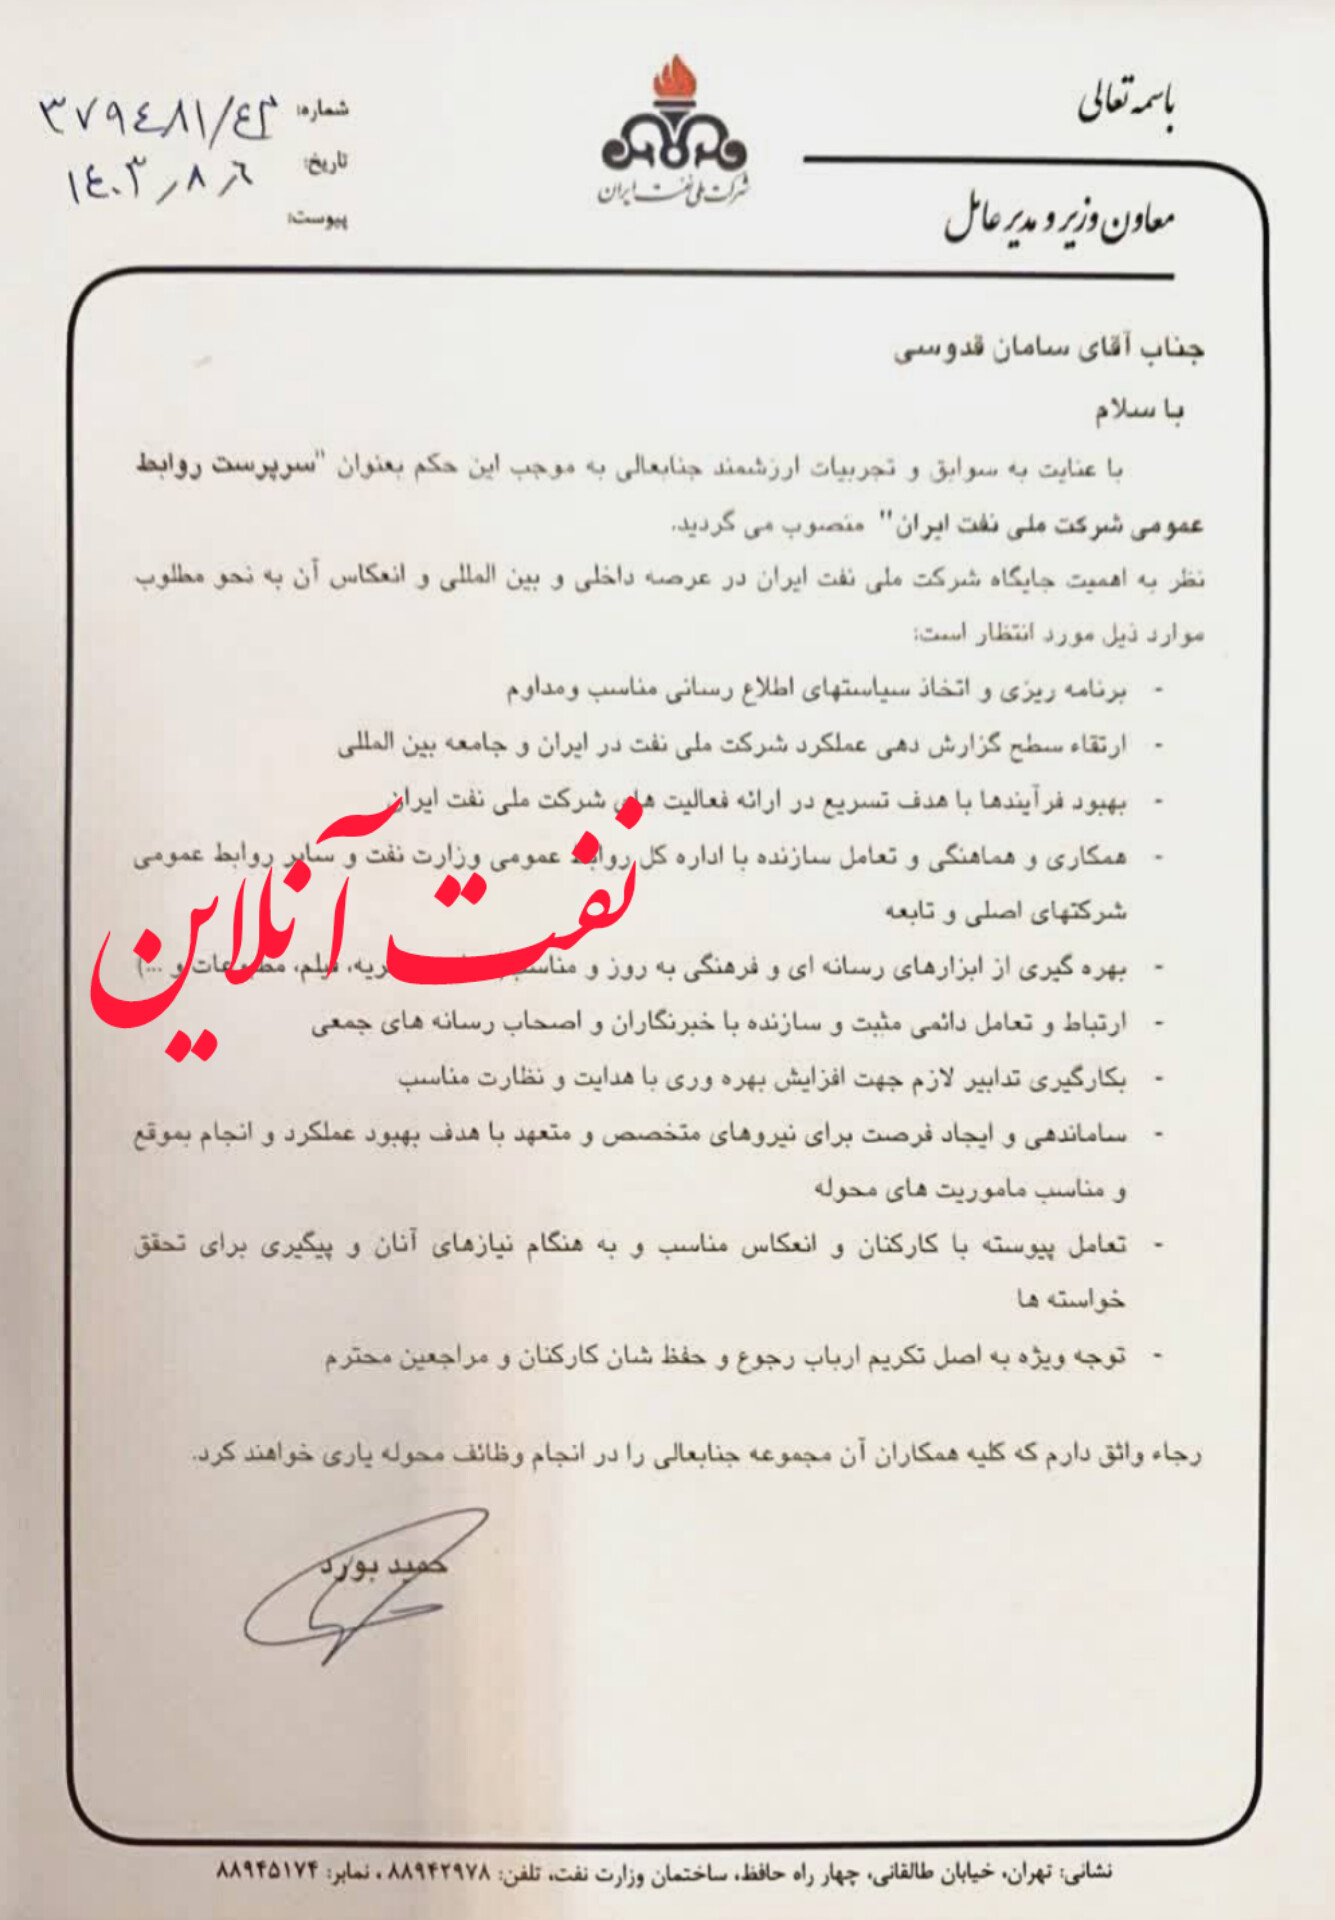 باسمه تعالی
معاون وزیر و مدیر عامل
شرکت ملی نفت ایران
شماره: ۳۷۹٤۸۱/٤۳
تاریخ: ۱٤۰۳٫۸٫٦
پیوست:
جناب آقای سامان قدوسی
با سلام
با عنایت به سوابق و تجربیات ارزشمند جنابعالی به موجب این حکم بعنوان "سرپرست روابط
عمومی شرکت ملی نفت ایران" منصوب می گردید.
نظر به اهمیت جایگاه شرکت ملی نفت ایران در عرصه داخلی و بین المللی و انعکاس آن به نحو مطلوب
موارد ذیل مورد انتظار است:
- برنامه ریزی و اتخاذ سیاستهای اطلاع رسانی مناسب ومداوم
- ارتقاء سطح گزارش دهی عملکرد شرکت ملی نفت در ایران و جامعه بین المللی
- بهبود فرآیندها با هدف تسریع در ارائه فعالیت های شرکت ملی نفت ایران
- همکاری و هماهنگی و تعامل سازنده با اداره کل روابط عمومی وزارت نفت و سایر روابط عمومی
شرکتهای اصلی و تابعه
نفت آنلاین
- بهره گیری از ابزارهای رسانه ای و فرهنگی به روز و فیلم، مطبوعات و ...)
- ارتباط و تعامل دائمی مثبت و سازنده با خبرنگاران و اصحاب رسانه های جمعی
- بکارگیری تدابیر لازم جهت افزایش بهره وری با هدایت و نظارت مناسب
- ساماندهی و ایجاد فرصت برای نیروهای متخصص و متعهد با هدف بهبود عملکرد و انجام بموقع
و مناسب ماموریت های محوله
- تعامل پیوسته با کارکنان و انعکاس مناسب و به هنگام نیازهای آنان و پیگیری برای تحقق
خواسته ها
- توجه ویژه به اصل تکریم ارباب رجوع و حفظ شان کارکنان و مراجعین محترم
رجاء واثق دارم که کلیه همکاران آن مجموعه جنابعالی را در انجام وظائف محوله یاری خواهند کرد.
حمید بورد
نشانی: تهران، خیابان طالقانی، چهار راه حافظ، ساختمان وزارت نفت، تلفن: ۸۸۹۴۲۹۷۸ ، نمابر: ۸۸۹۴۵۱۷۴